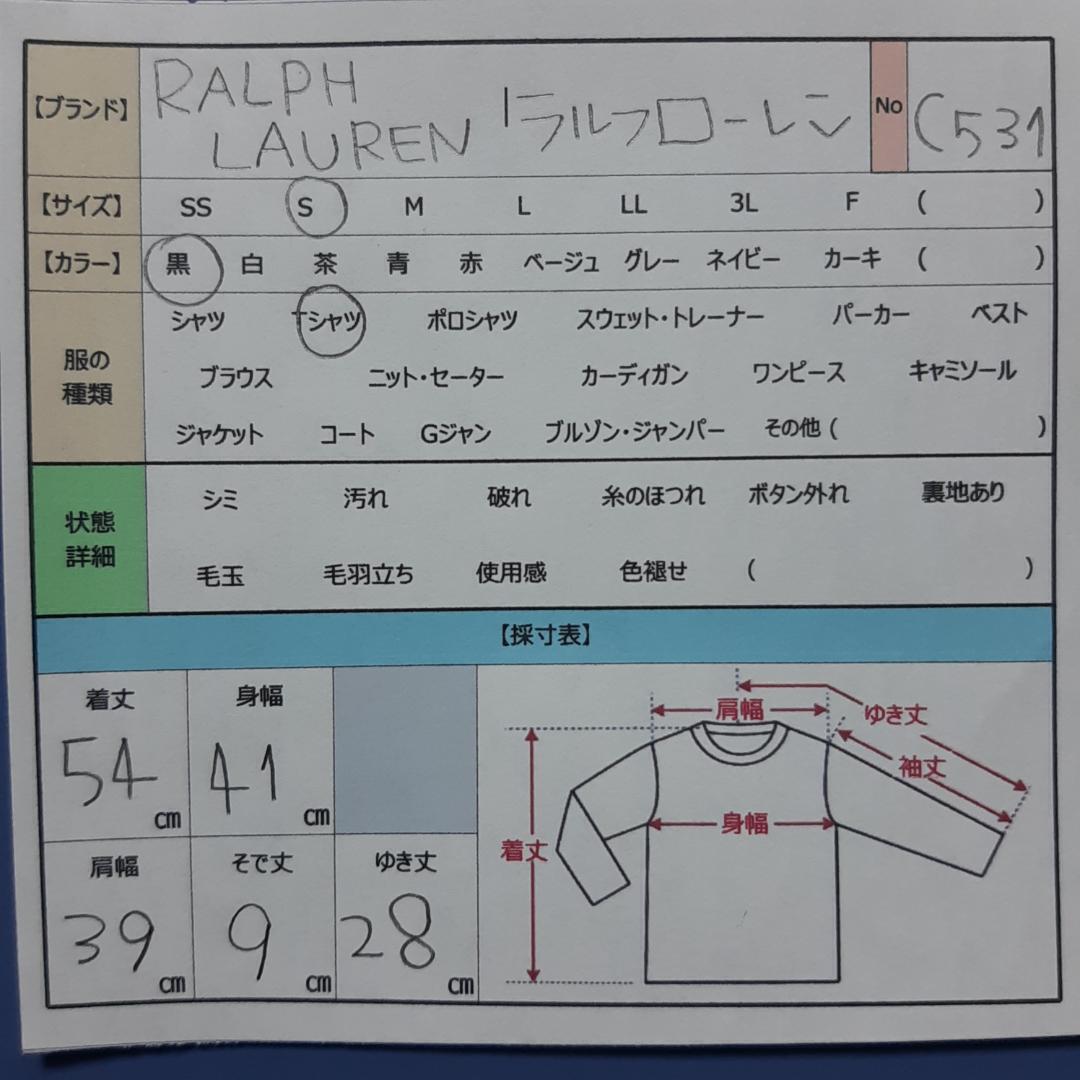 【ブランド】 RALPH LAUREN ラルフローレン No C531
【サイズ】 SS S M L LL 3L F ( )
【カラー】 黒 白 茶 青 赤 ベージュ グレー ネイビー カーキ ( )
服の種類 シャツ Tシャツ ポロシャツ スウェット・トレーナー パーカー ベスト
ブラウス ニット・セーター カーディガン ワンピース キャミソール
ジャケット コート Gジャン ブルゾン・ジャンパー その他 ( )
状態詳細 シミ 汚れ 破れ 糸のほつれ ボタン外れ 裏地あり
毛玉 毛羽立ち 使用感 色褪せ ( )
【採寸表】
着丈 身幅
54 cm 41 cm
肩幅 そで丈 ゆき丈
39 cm 9 cm 28 cm
肩幅 ゆき丈
袖丈
身幅
着丈